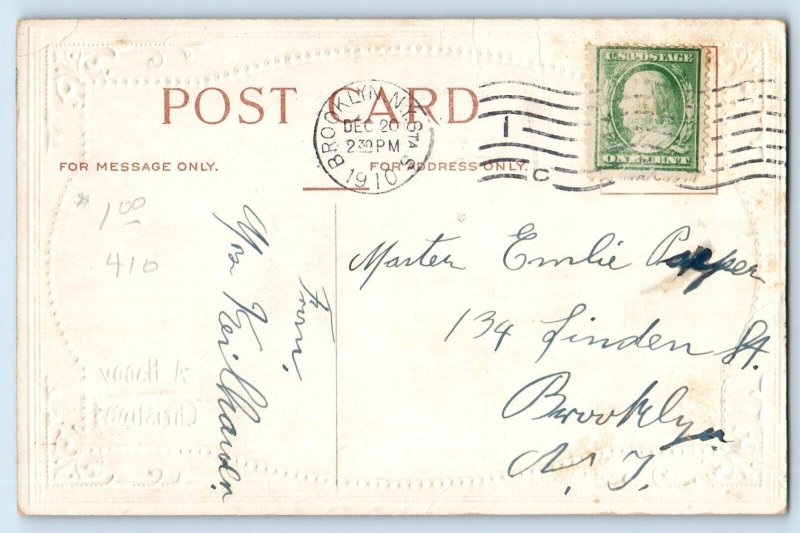 POST CARD
BROOKLYN, N.Y. STA. S.
DEC 20
2 30 PM
1910
1
C
U.S. POSTAGE
ONE CENT
FOR MESSAGE ONLY.
FOR ADDRESS ONLY.
1 00
410
From,
Mrs
Master Emlie
134 Linden St.
Brooklyn
N. Y.
A Happy
Christmas